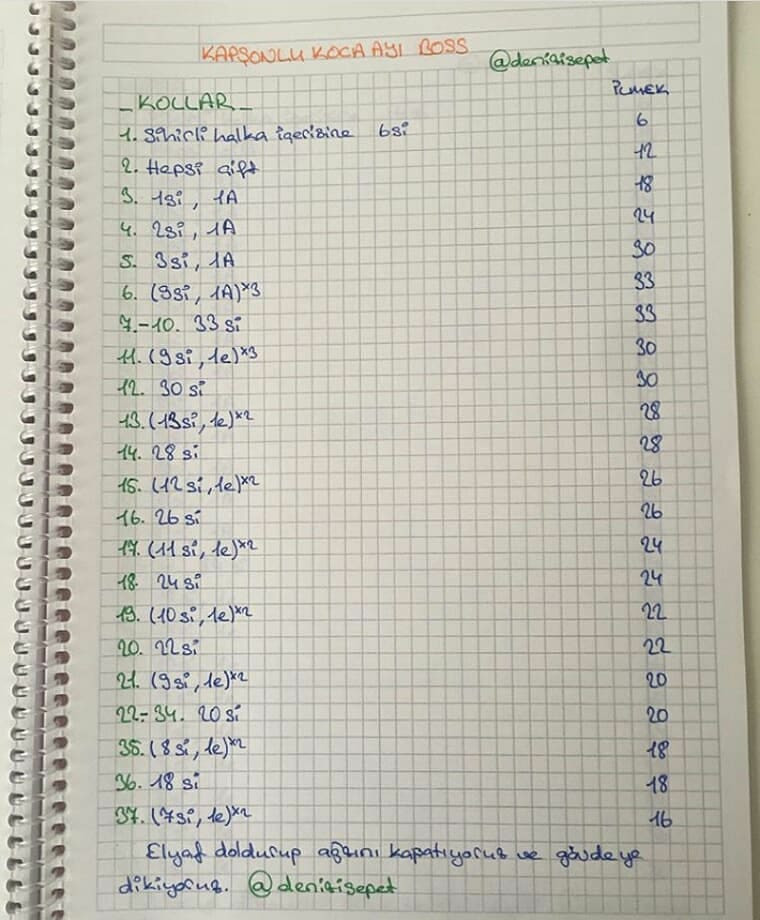 KAPŞONLU KOCA AYI BOSS
@denizisepet
_KOLLAR_ İLMEK
1. Sihirli halka içerisine 6si 6
2. Hepsi çift 12
3. 1si, 1A 18
4. 2si, 1A 24
5. 3si, 1A 30
6. (9si, 1A)×3 33
7.-10. 33 si 33
11. (9si, 1e)×3 30
12. 30 si 30
13. (13si, 1e)×2 28
14. 28 si 28
15. (12 si, 1e)×2 26
16. 26 si 26
17. (11 si, 1e)×2 24
18. 24 si 24
19. (10 si, 1e)×2 22
20. 22 si 22
21. (9si, 1e)×2 20
22.-34. 20 si 20
35. (8 si, 1e)×2 18
36. 18 si 18
37. (7si, 1e)×2 16
Elyaf doldurup ağzını kapatıyoruz ve gövdeye
dikiyoruz. @denizisepet